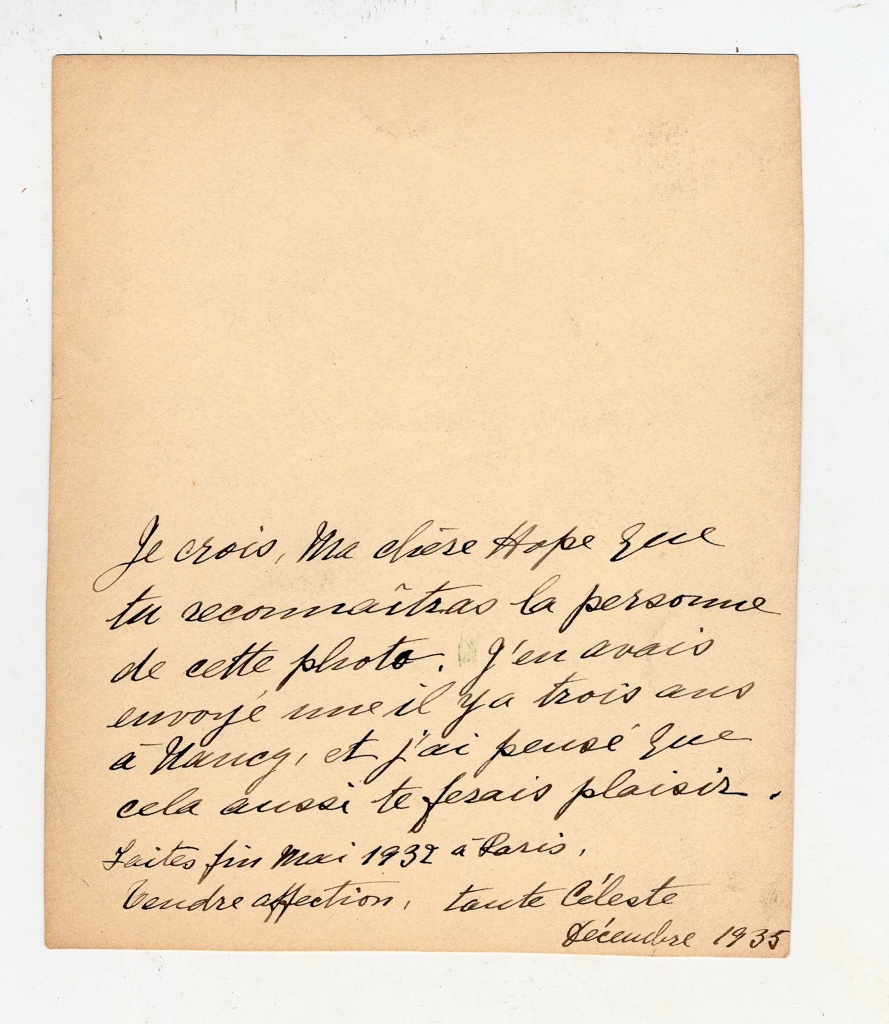 Je crois, Ma chère Hope que
tu reconnaîtras la personne
de cette photo. J'en avais
envoyé une il y a trois ans
à Nancy, et j'ai pensé que
cela aussi te ferais plaisir.
Faites fin Mai 1932 à Paris,
Tendre affection, tante Céleste
Décembre 1935